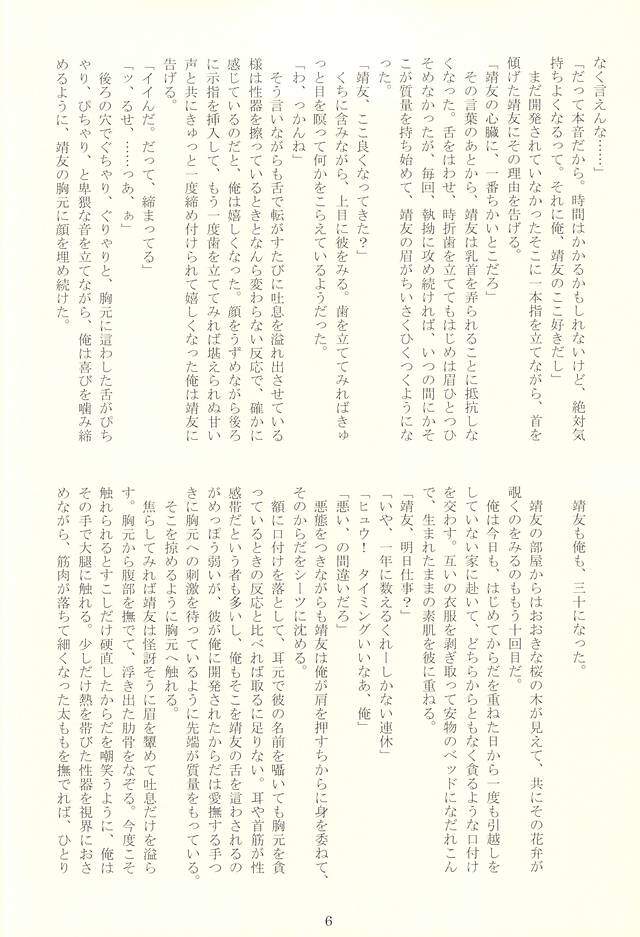 なく言えんな……」
「だって本音だから。時間はかかるかもしれないけど、絶対気
持ちよくなるって。それに俺、靖友のここ好きだし」
まだ開発されていなかったそこに一本指を立てながら、首を
傾げた靖友にその理由を告げる。
「靖友の心臓に、一番ちかいとこだろ」
その言葉のあとから、靖友は乳首を弄られることに抵抗しな
くなった。舌をはわせ、時折歯を立ててもはじめは眉ひとつひ
そめなかったが、毎回、執拗に攻め続ければ、いつの間にかそ
こが質量を持ち始めて、靖友の眉がちいさくひくつくようにな
った。
「靖友、ここ良くなってきた？」
くちに含みながら、上目に彼をみる。歯を立ててみればきゅ
っと目を瞑って何かをこらえているようだった。
「わ、っかんね」
そう言いながらも舌で転がすたびに吐息を溢れ出させている
様は性器を擦っているときとなんら変わらない反応で、確かに
感じているのだと、俺は嬉しくなった。顔をうずめながら後ろ
に示指を挿入して、もう一度歯を立ててみれば堪えられぬ甘い
声と共にきゅっと一度締め付けられて嬉しくなった俺は靖友に
告げる。
「イイんだ。だって、締まってる」
「ッ、るせ、……っあ、ぁ」
後ろの穴でぐちゃり、ぐりゃりと、胸元に這わした舌がぴち
ゃり、ぴちゃり、と卑猥な音を立てながら、俺は喜びを噛み締
めるように、靖友の胸元に顔を埋め続けた。
靖友も俺も、三十になった。
靖友の部屋からはおおきな桜の木が見えて、共にその花弁が
覗くのをみるのももう十回目だ。
俺は今日も、はじめてからだを重ねた日から一度も引越しを
していない家に赴いて、どちらからともなく貪るような口付け
を交わす。互いの衣服を剥ぎ取って安物のベッドになだれこん
で、生まれたままの素肌を彼に重ねる。
「靖友、明日仕事？」
「いや、一年に数えるくれーしかない連休」
「ヒュウ！　タイミングいいなあ、俺」
「悪い、の間違いだろ」
悪態をつきながらも靖友は俺が肩を押すちからに身を委ねて、
そのからだをシーツに沈める。
額に口付けを落として、耳元で彼の名前を囁いても胸元を貪
っているときの反応と比べれば取るに足りない。耳や首筋が性
感帯だという者も多いし、俺もそこを靖友の舌を這わされるの
がめっぽう弱いが、彼が俺に開発されたからだは愛撫する手つ
きに胸元への刺激を待っているように先端が質量をもっている。
そこを掠めるように胸元へ触れる。
焦らしてみれば靖友は怪訝そうに眉を顰めて吐息だけを溢ら
す。胸元から腹部を撫でて、浮き出た肋骨をなぞる。今度こそ
触れられるとすこしだけ硬直したからだを嘲笑うように、俺は
その手で大腿に触れる。少しだけ熱を帯びた性器を視界におさ
めながら、筋肉が落ちて細くなった太ももを撫でれば、ひとり
6